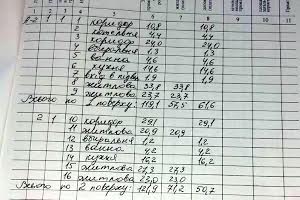 1 2 3 4 5 6 7 8 9 10 11
1 1 1 коридор 10,8 10,8
2 котельня 4,4 4,4
3 коридор 24,0 24,0
4 вбиральня 1,3 1,3
5 ванна 4,6 4,6
6 кухня 14,6 14,6
7 вхід в підвал 1,9 1,9
8 житлова 33,8 33,8
9 житлова 23,7 23,7
Всього по 1 поверху: 119,1 57,5 61,6
2 1 10 коридор 29,1 29,1
11 житлова 20,9 20,9
12 вбиральня 1,2 1,2
13 ванна 4,2 4,2
14 кухня 16,2 16,2
15 житлова 27,3 27,3
16 житлова 23,0 23,0
Всього по 2 поверху: 121,9 71,2 50,7